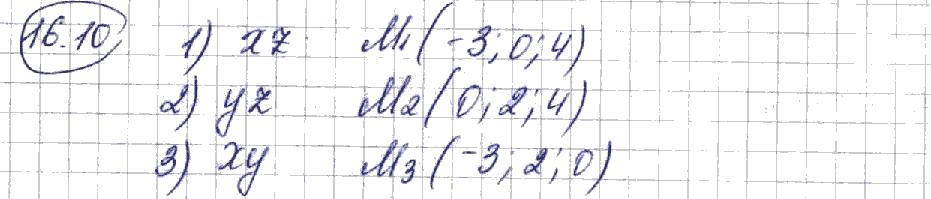 16.10, 1) xz M1 (-3; 0; 4)
2) yz M2 (0; 2; 4)
3) xy M3 (-3; 2; 0)